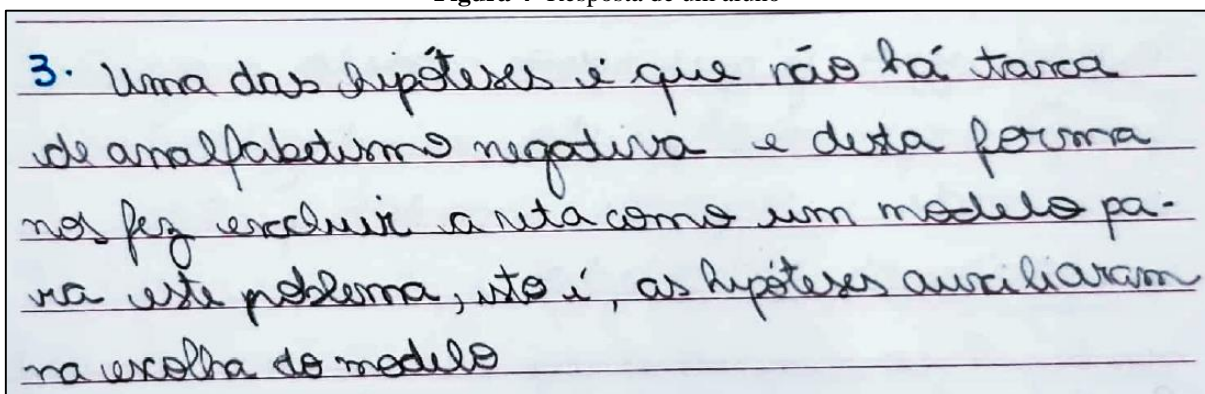 Figura 4- Resposta de um aluno
3. Uma das hipóteses é que não há taxa
de analfabetismo negativa e desta forma
nos fez excluir a reta como um modelo pa-
ra este problema, isto é, as hipóteses auxiliaram
na escolha do modelo